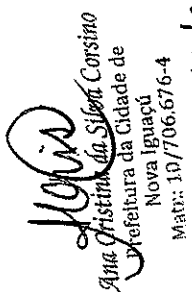 Ana Cristina da Silva Corsino
Prefeitura da Cidade de
Nova Iguaçú
Matr.: 10/706.676-4